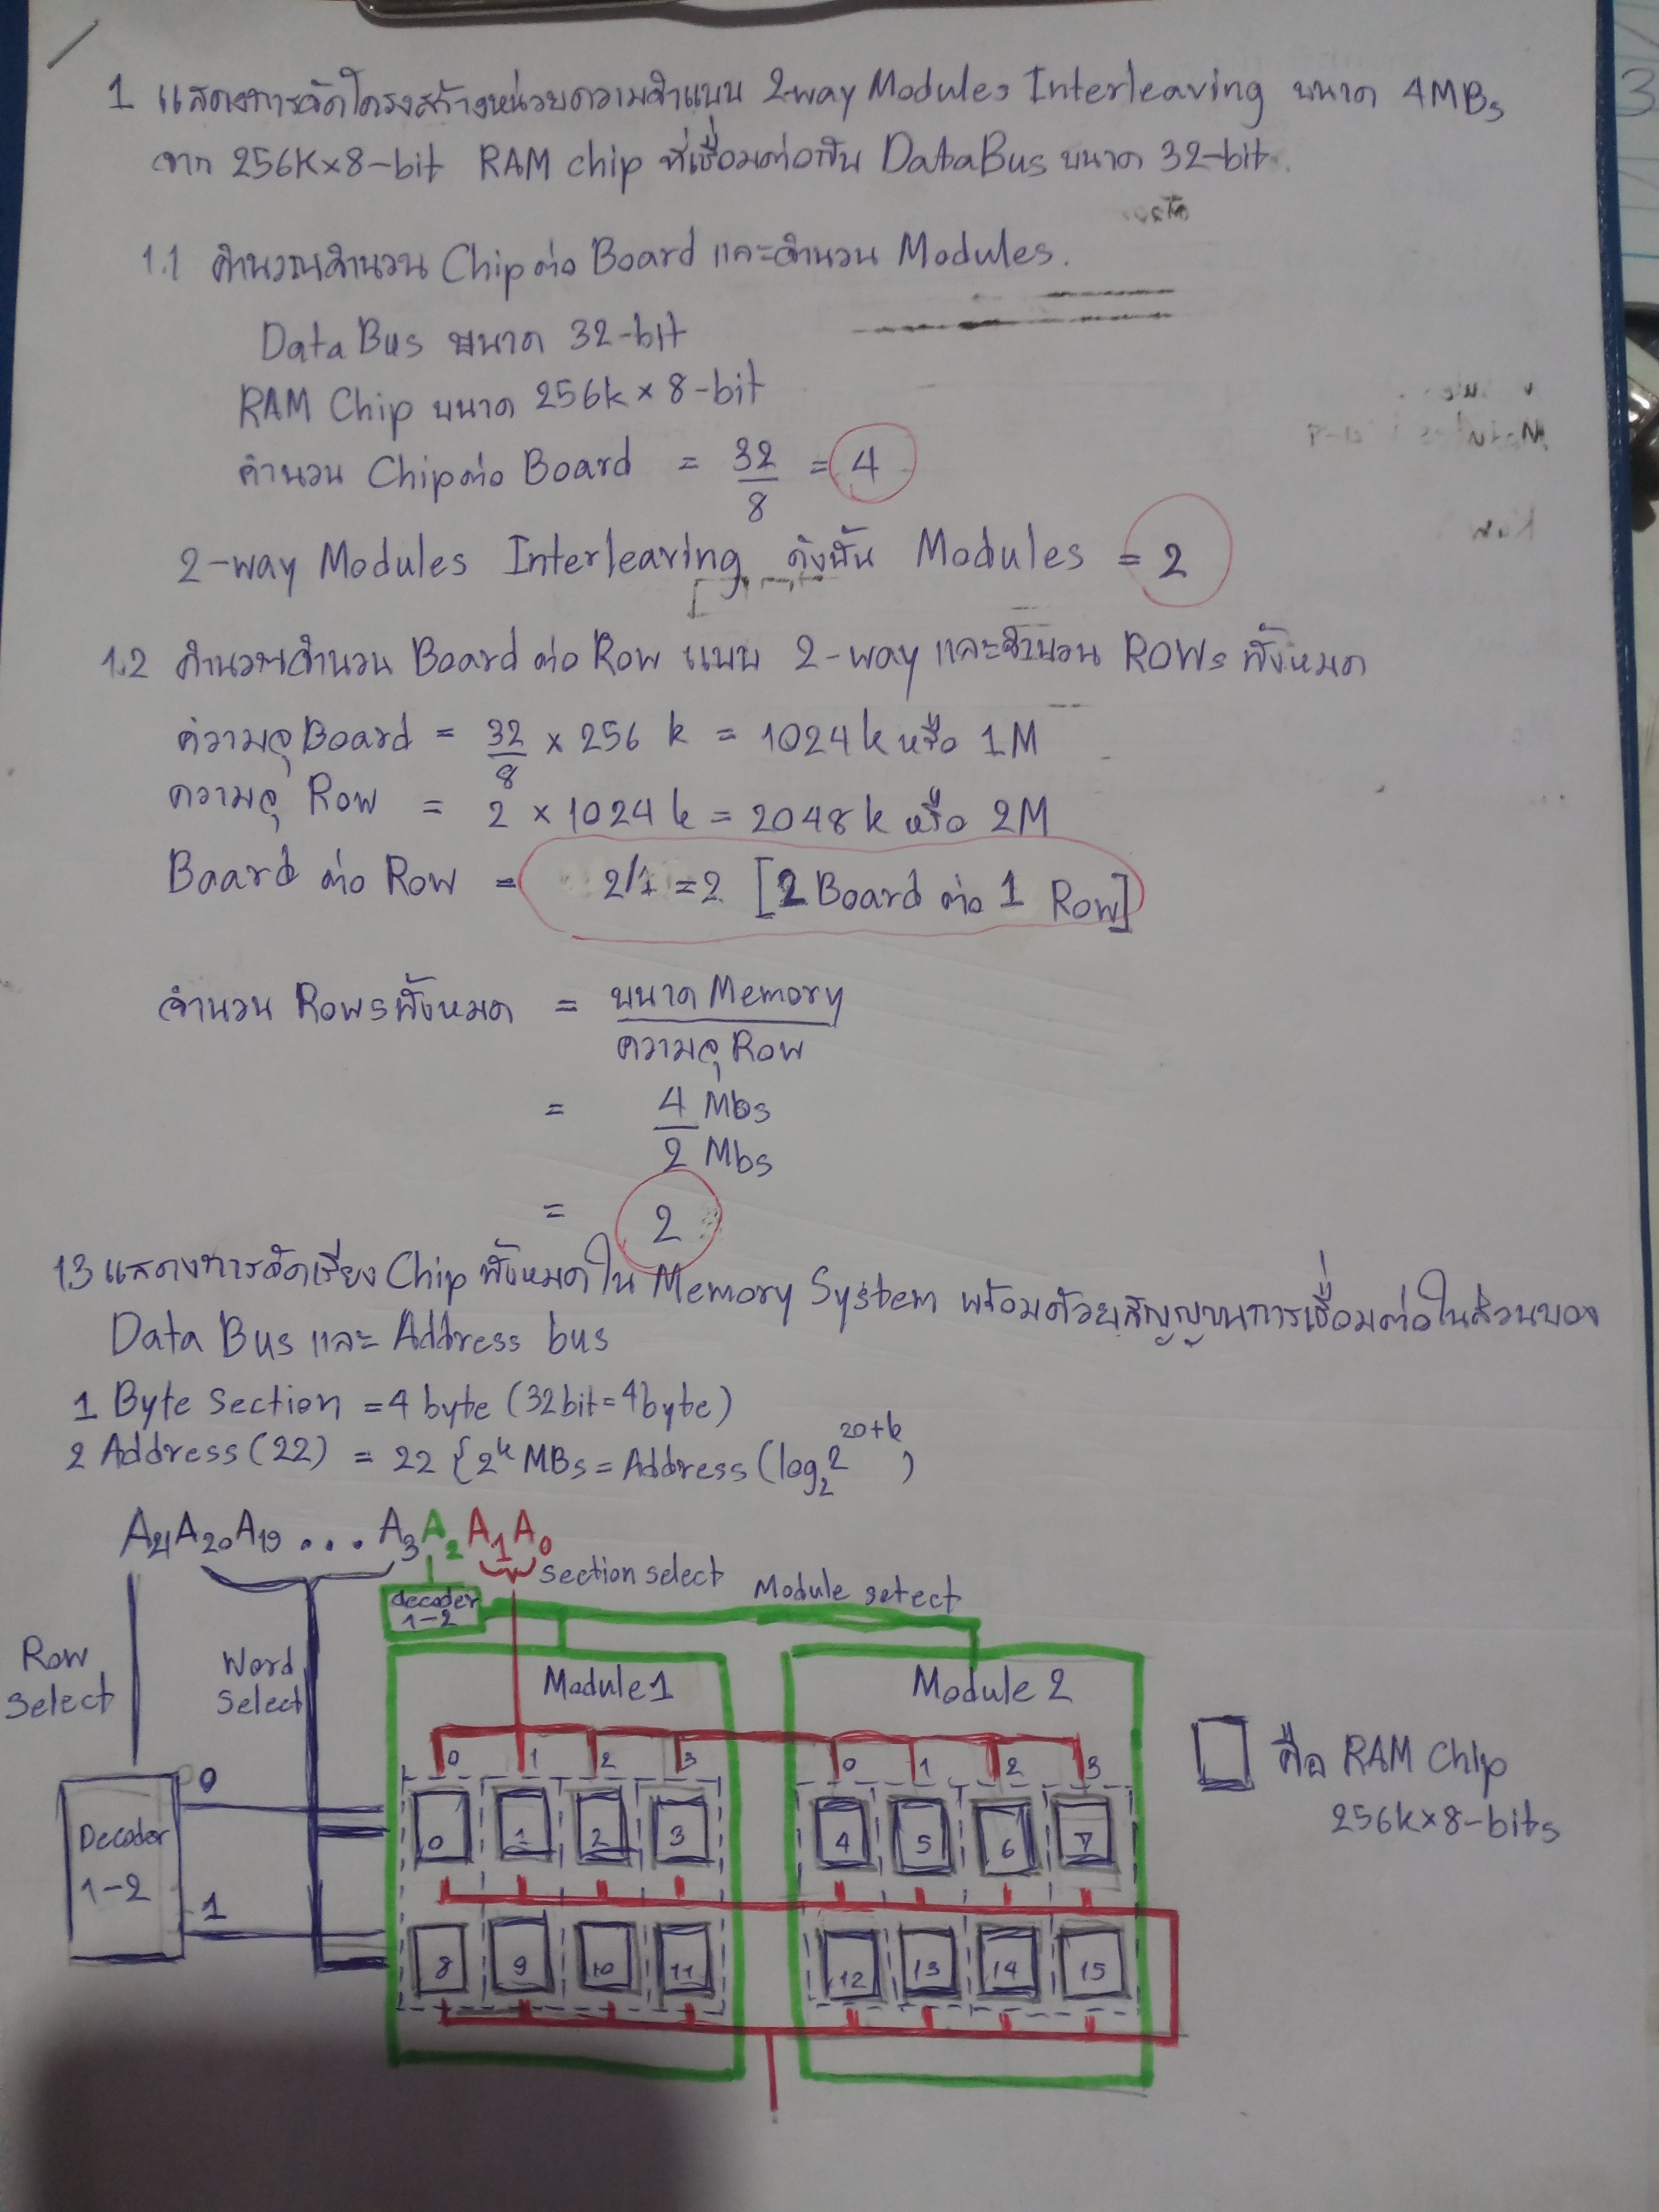 1 แสดงการจัดโครงสร้างหน่วยความจำแบบ 2-way Modules Interleaving ขนาด 4MBs
จาก 256K×8-bit RAM chip ที่เชื่อมต่อกับ DataBus ขนาด 32-bit.
1.1 คำนวณจำนวน Chip ต่อ Board และจำนวน Modules.
Data Bus ขนาด 32-bit
RAM Chip ขนาด 256k × 8-bit
จำนวน Chip ต่อ Board = 32/8 = 4
2-way Modules Interleaving ดังนั้น Modules = 2
1.2 คำนวณจำนวน Board ต่อ Row แบบ 2-way และจำนวน ROWs ทั้งหมด
ความจุ Board = 32/8 × 256 k = 1024k หรือ 1M
ความจุ Row = 2 × 1024 k = 2048 k หรือ 2M
Board ต่อ Row = 2/1 = 2 [2 Board ต่อ 1 Row]
จำนวน Rows ทั้งหมด = ขนาด Memory
ความจุ Row
= 4 Mbs
2 Mbs
= 2
1.3 แสดงการจัดเรียง Chip ทั้งหมดใน Memory System พร้อมด้วยสัญญานการเชื่อมต่อในส่วนของ
Data Bus และ Address bus
1 Byte Section = 4 byte (32bit=4byte)
2 Address (22) = 22 {2^k MBs = Address (log₂2^20+k)
A21 A20 A19 ... A3 A2 A1 A0
section select
decoder
1-2
Module setect
Row
Select
Word
Select
Module 1
Module 2
0 1 2 3 0 1 2 3
คือ RAM Chip
256k×8-bits
Decoder
1-2
0
1
0 1 2 3 4 5 6 7
8 9 10 11 12 13 14 15